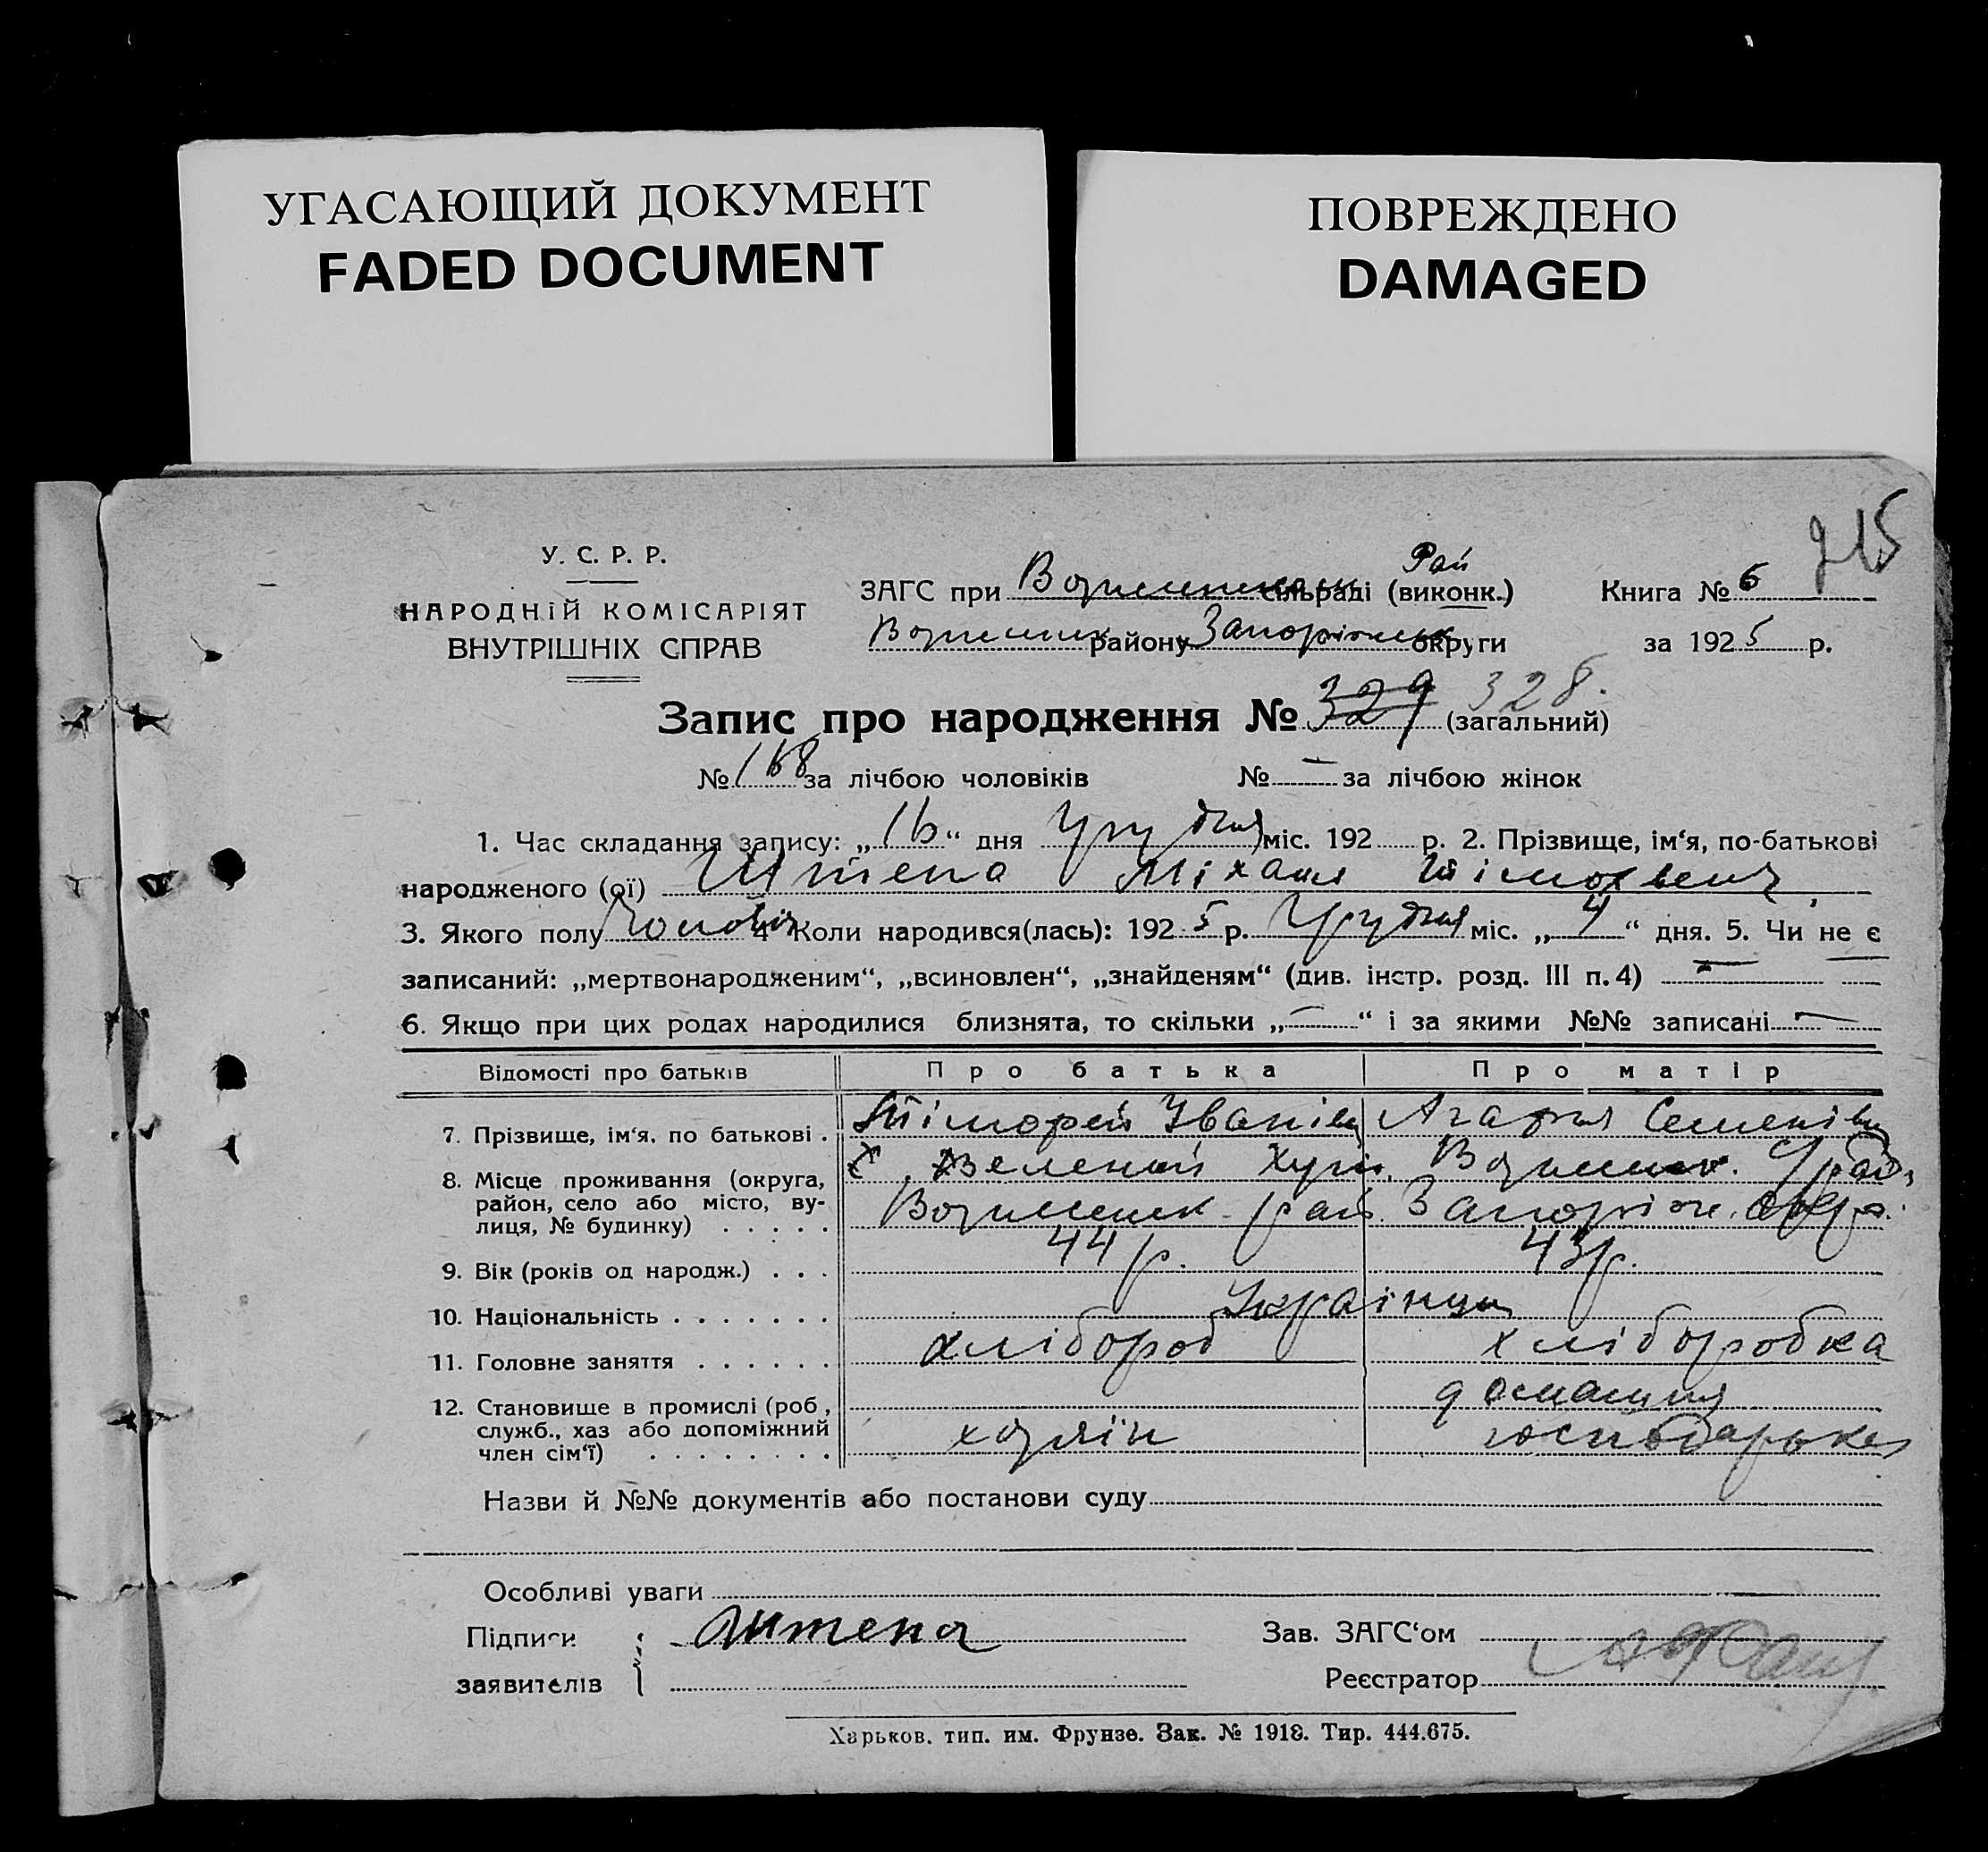 УГАСАЮЩИЙ ДОКУМЕНТ
FADED DOCUMENT
ПОВРЕЖДЕНО
DAMAGED
215
У. С. Р. Р.
НАРОДНІЙ КОМІСАРІЯТ
ВНУТРІШНІХ СПРАВ
Рай
ЗАГС при сільраді (виконк.)
району Запоріжськ округи
Книга № 6
за 1925 р.
Запис про народження № 329 328. (загальний)
№ 168 за лічбою чоловіків № — за лічбою жінок
1. Час складання запису: „16“ дня Грудня міс. 192 р. 2. Прізвище, ім‘я, по-батькові
народженого (ої) Штепа Міхаил
3. Якого полу 4 Коли народився(лась): 1925 р. Грудня міс. „4“ дня. 5. Чи не є
записаний: „мертвонародженим“, „всиновлен“, „знайденям“ (див. інстр. розд. III п. 4) —
6. Якщо при цих родах народилися близнята, то скільки „—“ і за якими №№ записані —
Відомості про батьків Про батька Про матір
7. Прізвище, ім‘я, по батькові . Тімофей Іванів Агафия Семенівн
8. Місце проживання (округа, Зеленый Хутір.
район, село або місто, ву- рай. Запоріж. окр.
лиця, № будинку) . . . . .
9. Вік (років од народж.) . . . 44 р. 43 р.
10. Національність . . . . . . . Українци
11. Головне заняття . . . . . . хлібороб хліборобка
12. Становище в промислі (роб , домашня
служб., хаз або допоміжний хозяїн господарька
член сім‘ї) . . . . . . . .
Назви й №№ документів або постанови суду
Особливі уваги
Підписи Штепа Зав. ЗАГС‘ом
заявителів Реєстратор
Харьков. тип. им. Фрунзе. Зак. № 1918. Тир. 444.675.